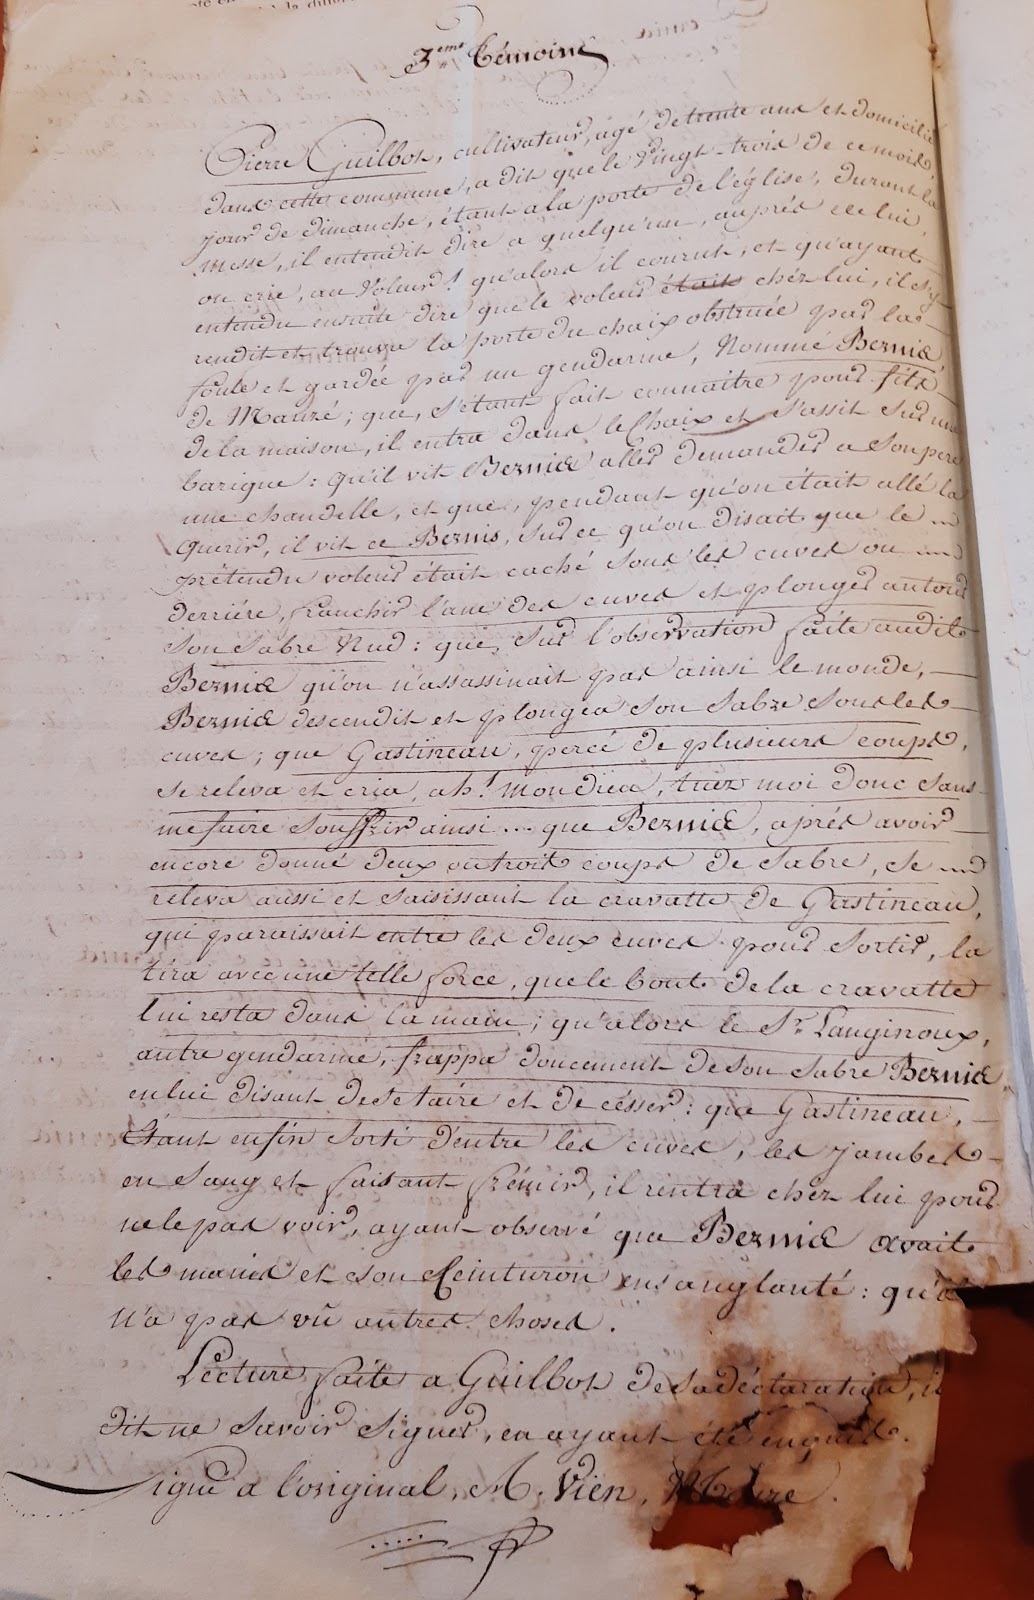 3.eme Témoin
Pierre Guilbot, cultivateur, agé de trente ans et domicilié
dans cette commune, a dit que le Vingt-trois de ce mois,
jour de dimanche, étant a la porte de l'église, durant la
Messe, il entendit dire a quelqu'un, auprès de lui,
on crie, au Voleur! qu'alors il courut, et qu'ayant
entendu ensuite dire que le voleur était chéz lui, il s'y
rendit et trouva la porte du chaix obstruée par la
foule et gardée par un gendarme, Nommé Bernis
de Mauzé; que, s'étant fait connaître pour fils
de la maison, il entra dans le Chaix et s'assit sur une
barique: qu'il vit Bernis aller demander a son pere
une chandelle, et que, pendant qu'on était allé la
querir, il vit ce Bernis, sur ce qu'on disait que le
prétendu voleur était caché sous les cuves ou
derriére, franchir l'une des cuves et plonger autour
son Sabre Nud: que, sur l'observation faite audit
Bernis qu'on n'assassinait pas ainsi le monde,
Bernis descendit et plongea son sabre sous les
cuves; que Gastineau, percé de plusieurs coups,
se releva et cria, ah! mon dieu, tuez moi donc sans
me faire souffrir ainsi... que Bernis, après avoir
encore donné deux ou trois coups de sabre, se
releva aussi et saisissant la cravatte de Gastineau,
qui paraissait entre les deux cuves pour sortir, la
tira avec une telle force, que le bout de la cravatte
lui resta dans la main; qu'alors le Sr. Langinoux,
autre gendarme, frappa doucement de son sabre Bernis
en lui disant de se taire et de césser: que Gastineau,
étant enfin sorti d'entre les cuves, les jambes
en sang et faisant frémir, il rintra chez lui pour
ne le pas voir, ayant observé que Bernis avait
les mains et son Ceinturon ensanglanté: qu'il
n'a pas vû autres choses.
Lecture faite a Guilbot de sa déclaration, il
dit ne savoir signer, en ayant été enquis.
Signé a l'original, A. Vien, Maire.